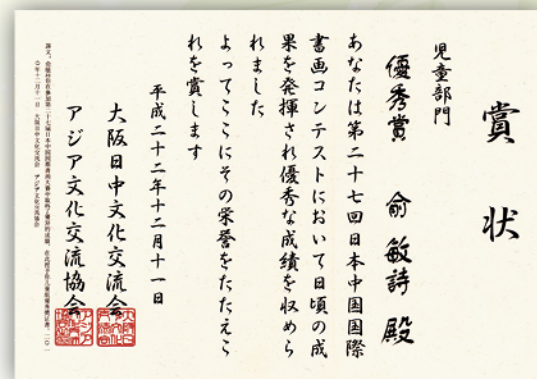 賞状
児童部門
優秀賞 俞敏詩殿
あなたは第二十七回日本中国国際
書画コンテストにおいて日頃の成
果を発揮され優秀な成績を収めら
れました
よってここにその栄誉をたたえこ
れを賞します
平成二十二年十二月十一日
大阪日中文化交流会
アジア文化交流協会